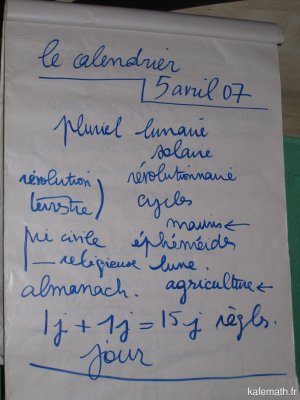 le calendrier
5 avril 07
pluriel lunaire
solaire
révolution révolutionnaire
terrestre) cycles
marins ←
civile éphéméides
religieuse lune.
almanach. agriculture ←
1j + 1j = 15j règles.
jour
kafemath.fr